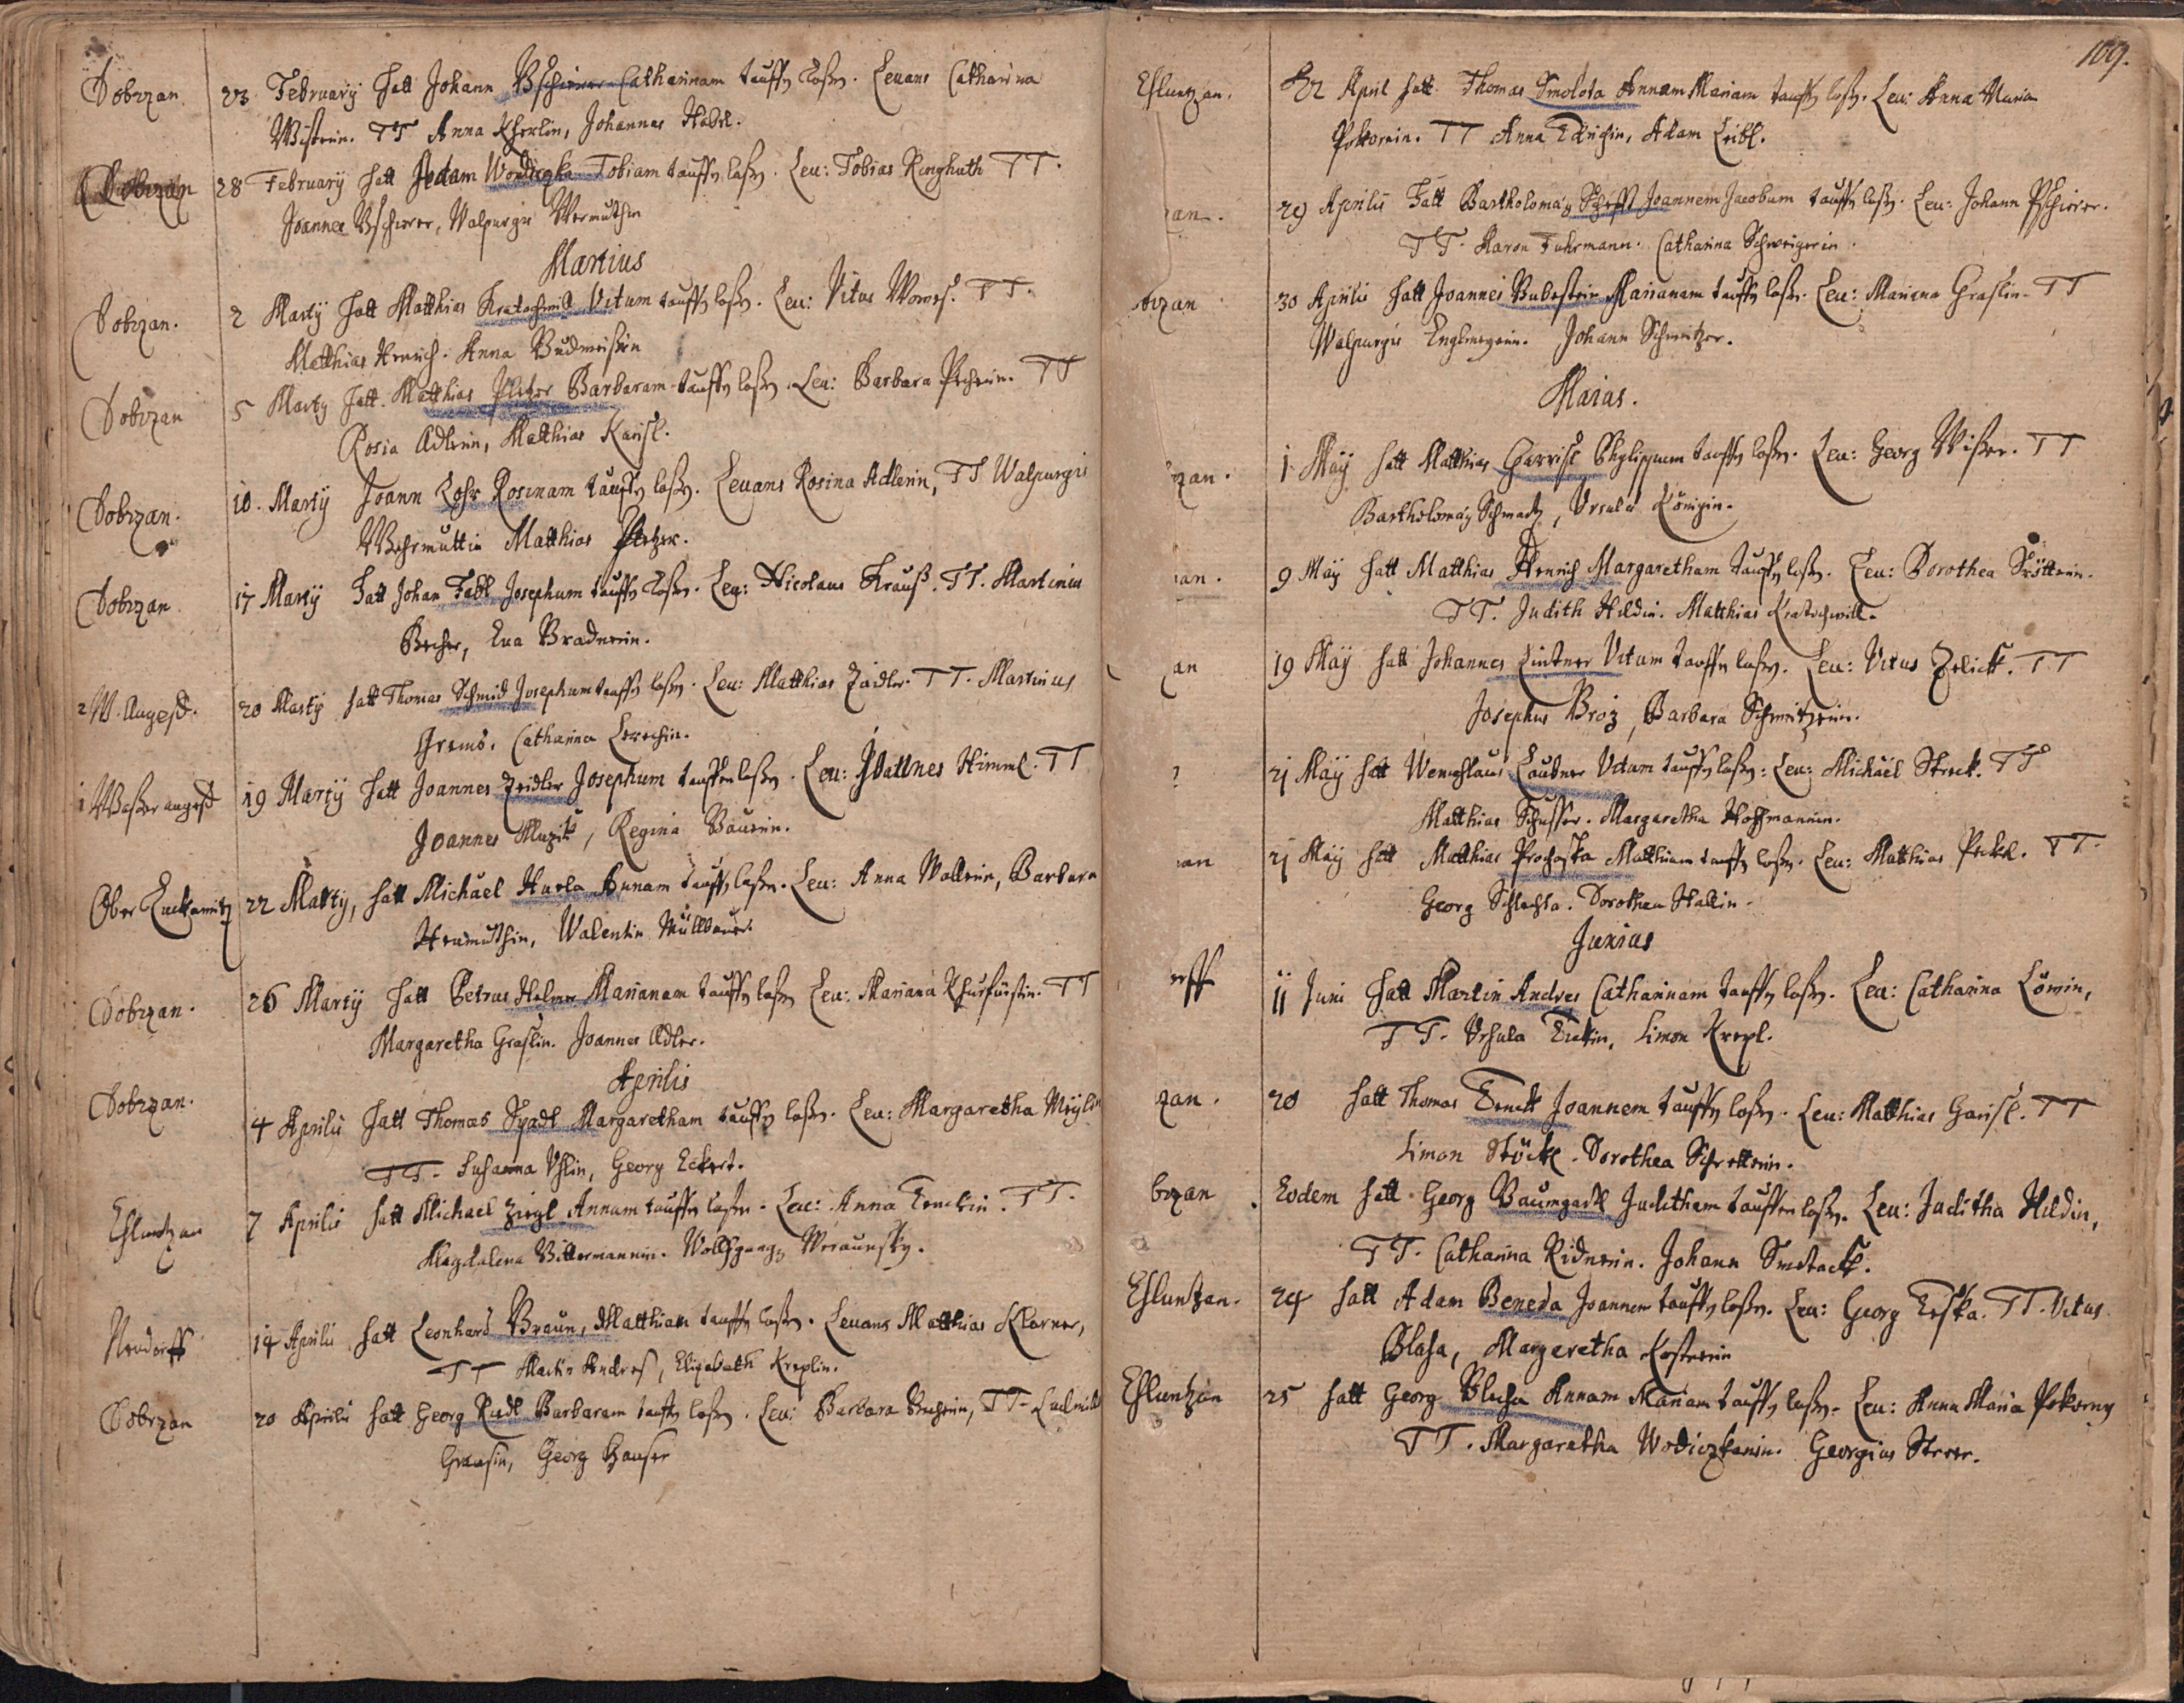 Dobrzan. 23 February Hatt Johann Pschierer Catharinam tauffen laßen. Levans Catharina
Wisterin. TT Anna Kherlin, Johannes Häberl.
Dobrzan 28 February hatt Adam Wodiczka Tobiam tauffen laßen. Leu: Tobias Ringhuth TT.
Joannes Pschierer, Walpurgis Wermuthin
Martius
Dobrzan. 2 Marty Hatt Matthias Kratochwil Vitum tauffen laßen. Leu: Vitus TT.
Matthias Henrich. Anna Budweißin
Dobrzan 5 Marty Hatt Matthias Pletzer Barbaram tauffen laßen. Leu: Barbara Pecherin. TT
Rosia Adlerin, Matthias Kaiisl.
Dobrzan. 10. Marty Joann Lohr Rosinam tauffen laßen. Levans Rosina Adlerin, TT Walpurgis
Wehrmuttin Matthias Pletzer.
Dobrzan. 17 Marty Hatt Johan Fabl Josephum tauffen laßen. Leu: Nicolaus Krauß. TT. Martinus
Becher, Eva Bradnerin.
2 W. Augesd. 20 Marty hatt Thomas Schmid Josephum tauffen laßen. Leu: Matthias Zaidler. TT. Martinus
Grems. Catharina Lerchin.
1 Waßer augesd 19 Marty hatt Joannes Zeidler Josephum tauffen laßen. Leu: Himml. TT
Joannes Muzik, Regina Bäurin.
Ober 22 Marty, hatt Michäel Havla Annam tauffen laßen. Leu: Anna Wallerin, Barbara
Walentin Müllbauer.
Dobrzan. 26 Marty hatt Petrus Helmer Marianam tauffen laßen Leu: Mariana Khurfürstin. TT
Margaretha Graslin. Joannes Adler.
Aprilis
Dobrzan. 4 Aprilis Hatt Thomas Spadl Margaretham tauffen laßen. Leu: Margaretha Meylin
TT. Susanna Uhlin, Georg Eckert.
Ehluntzan 7 Aprilis hatt Michael Ziegl Annam tauffen laßen. Leu: Anna TT.
Magdalena Bittermannin. Wolffgang Woraunsky.
Neudorff 14 Aprilis hatt Leonhard Braun, Matthiam tauffen laßen. Levans Matthias Klarner,
TT Martin Andres, Elizabeth Kreplin.
Dobrzan 20 Aprilis hatt Georg Riedl Barbaram tauffen laßen. Leu: Barbara TT. Ludmill
Georg Hauser
109.
Ehluntzan. 22 April hatt Thomas Smolota Annam Mariam tauffen laßen. Leu: Anna Maria
Pokorni. TT Anna Adam Leibl.
zan. 29 Aprilis Hatt Bartholomäy Joannem Jacobum tauffen laßen. Leu: Johann Pschierer.
TT. Aaron Fuhrmann. Catharina Schweigerin.
brzan 30 Aprilis hatt Joannes Bubestein Marianam tauffen laßen. Leu: Mariana Graslin. TT
Walpurgis Johann Schmitzer.
Maius.
zan. 1 May hatt Matthias Phylippum tauffen laßen. Leu: Georg Wißer. TT
Bartholomäy Schmatz, Ursula Königin.
zan. 9 May hatt Matthias Henrich Margaretham tauffen laßen. Leu: Dorothea
TT. Judith Hildin. Matthias Kratochwill.
zan 19 May hatt Johannes Lintner Vitum tauffen laßen. Leu: Vitus Zelick. TT
Josephus Broz, Barbara Schmitzerin.
21 May hatt Wenzeslaus Laubner Vitum tauffen laßen: Leu: Michäel Streck. TT
Matthias Schusser. Margaretha Hoffmannin.
zan 21 May hatt Matthias Prochaska Matthiam tauffen laßen. Leu: Matthias Pekel. TT.
Georg Schlechta. Dorothea Stallin.
Junius
erff 11 Juni hatt Martin Andres Catharinam tauffen laßen. Leu: Catharina Löwin,
TT. Ursula Simon Krepl.
zan. 20 hatt Thomas Joannem tauffen laßen. Leu: Matthias Gaiisl. TT
Simon Stöckl. Dorothea Schrötterin.
brzan Eodem hatt Georg Baumgartl Juditham tauffen laßen. Leu: Juditha Hildin,
TT. Catharina Ridnerin. Johann Smetack.
Ehluntzan. 24 hatt Adam Beneda Joannem tauffen laßen. Leu: Georg TT. Vitus
Blaha, Margeretha
Ehluntzan 25 hatt Georg Blaha Annam Mariam tauffen laßen. Leu: Anna Maria Pokorny
TT. Margaretha Wodiczkanin. Georgius Streer.